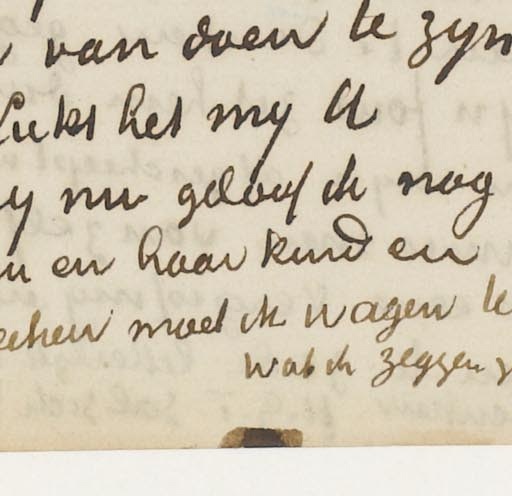 van doen te zyn
lukt het my U
y nu geloof ik nog
en haar kind en
moet ik wagen te
wat ik zeggen